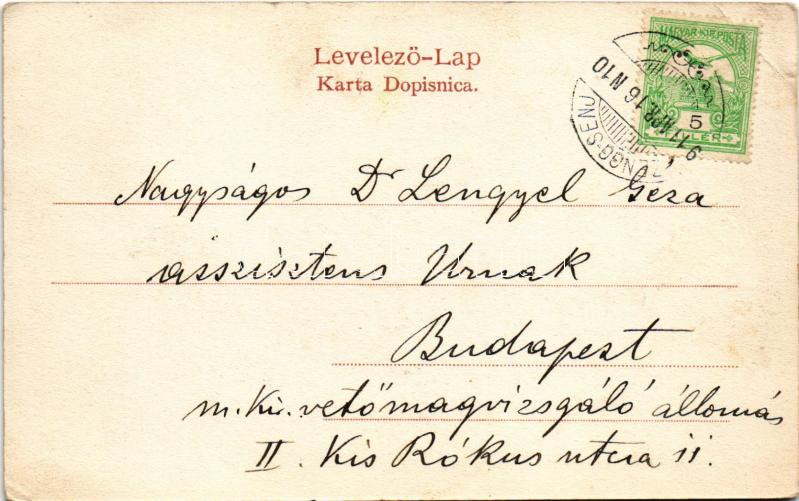 Levelező-Lap
Karta Dopisnica.
MAGYAR·KIR·POSTA
5
ZENGG-SENJ
913 APR. 16 N10
Nagyságos Dr Lengyel Geza
asszisztens Urnak
Budapest
m. Kir. vetőmagvizsgáló állomás
II. Kis Rókus utcza 11.